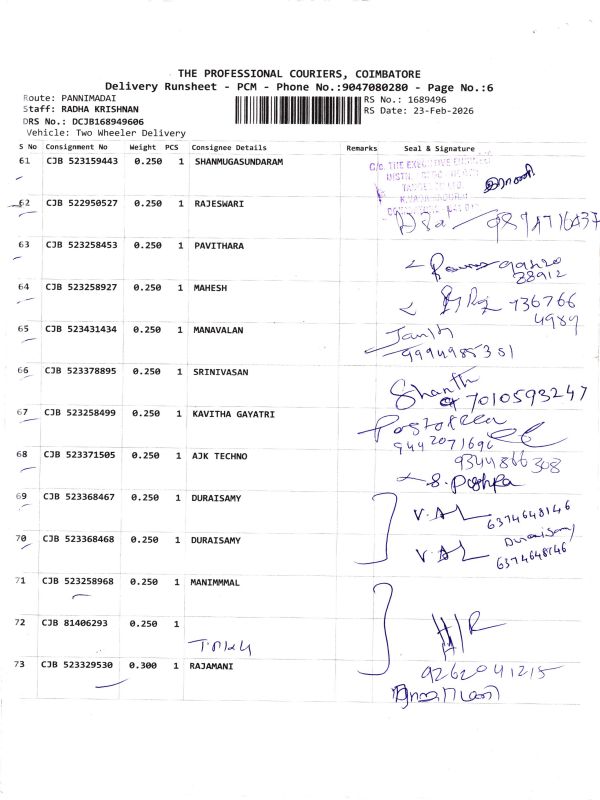 THE PROFESSIONAL COURIERS, COIMBATORE
Delivery Runsheet - PCM - Phone No.:9047080280 - Page No.:6
Route: PANNIMADAI
Staff: RADHA KRISHNAN
DRS No.: DCJB168949606
Vehicle: Two Wheeler Delivery
RS No.: 1689496
RS Date: 23-Feb-2026
S No Consignment No Weight PCS Consignee Details Remarks Seal & Signature
61 CJB 523159443 0.250 1 SHANMUGASUNDARAM
C/o. THE EXECUTIVE ENGINEER
62 CJB 522950527 0.250 1 RAJESWARI
63 CJB 523258453 0.250 1 PAVITHARA
28912
64 CJB 523258927 0.250 1 MAHESH
736766
4989
65 CJB 523431434 0.250 1 MANAVALAN
9994985351
66 CJB 523378895 0.250 1 SRINIVASAN
Shanth
7010593247
67 CJB 523258499 0.250 1 KAVITHA GAYATRI
9442071690
68 CJB 523371505 0.250 1 AJK TECHNO
9344866308
S. Pushpa
69 CJB 523368467 0.250 1 DURAISAMY
V.A.L 6374648146
70 CJB 523368468 0.250 1 DURAISAMY
Duraisamy
V.A.L 6374648146
71 CJB 523258968 0.250 1 MANIMMMAL
72 CJB 81406293 0.250 1
H/R
73 CJB 523329530 0.300 1 RAJAMANI
9262041215